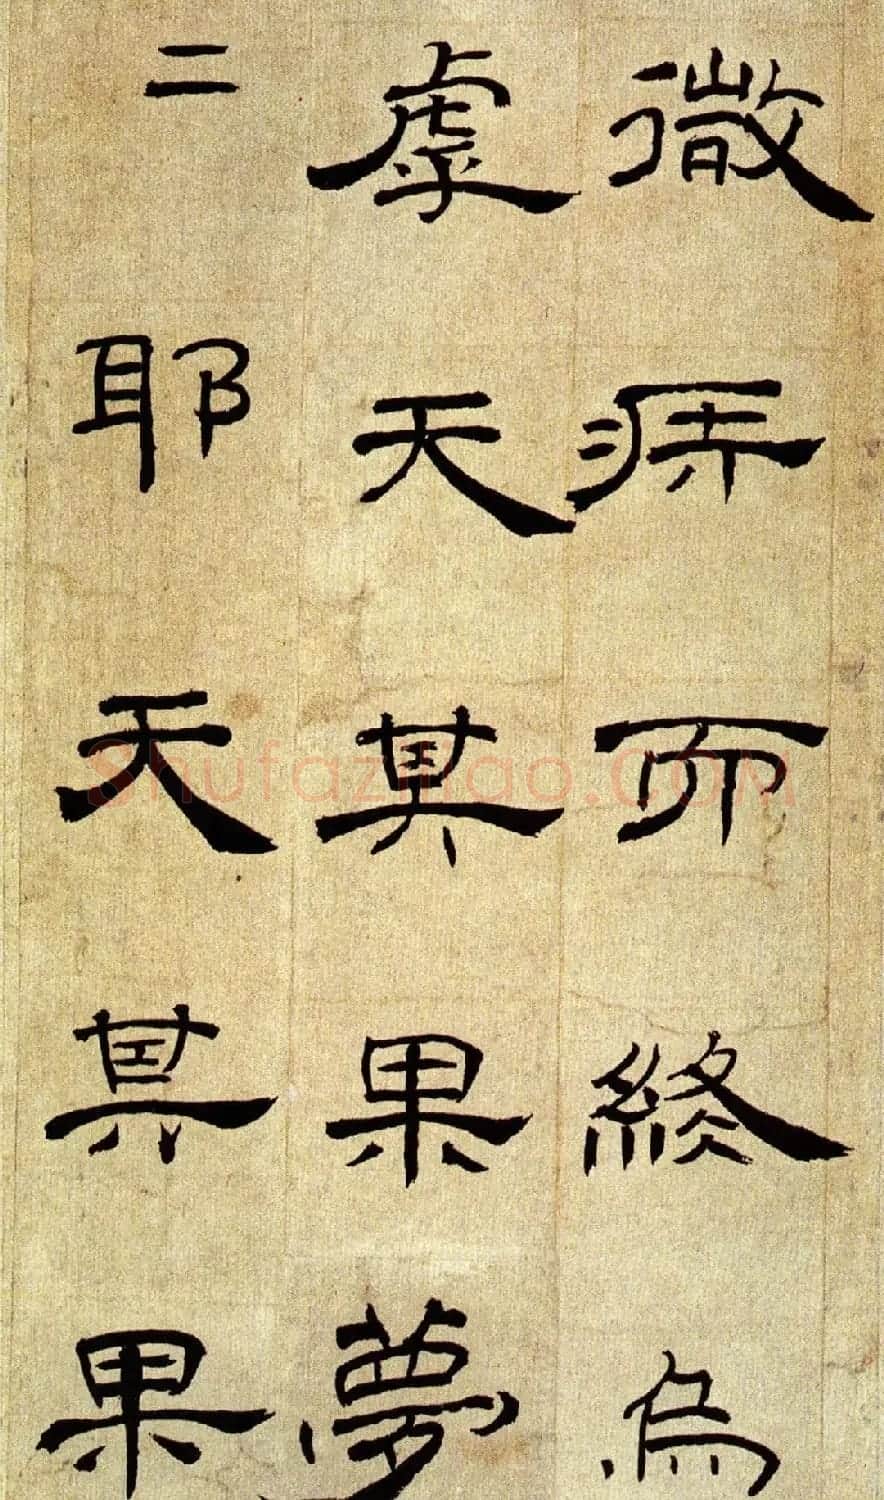 微疾而終烏
虖天其果夢
二耶天其果
Shufazihao.COM